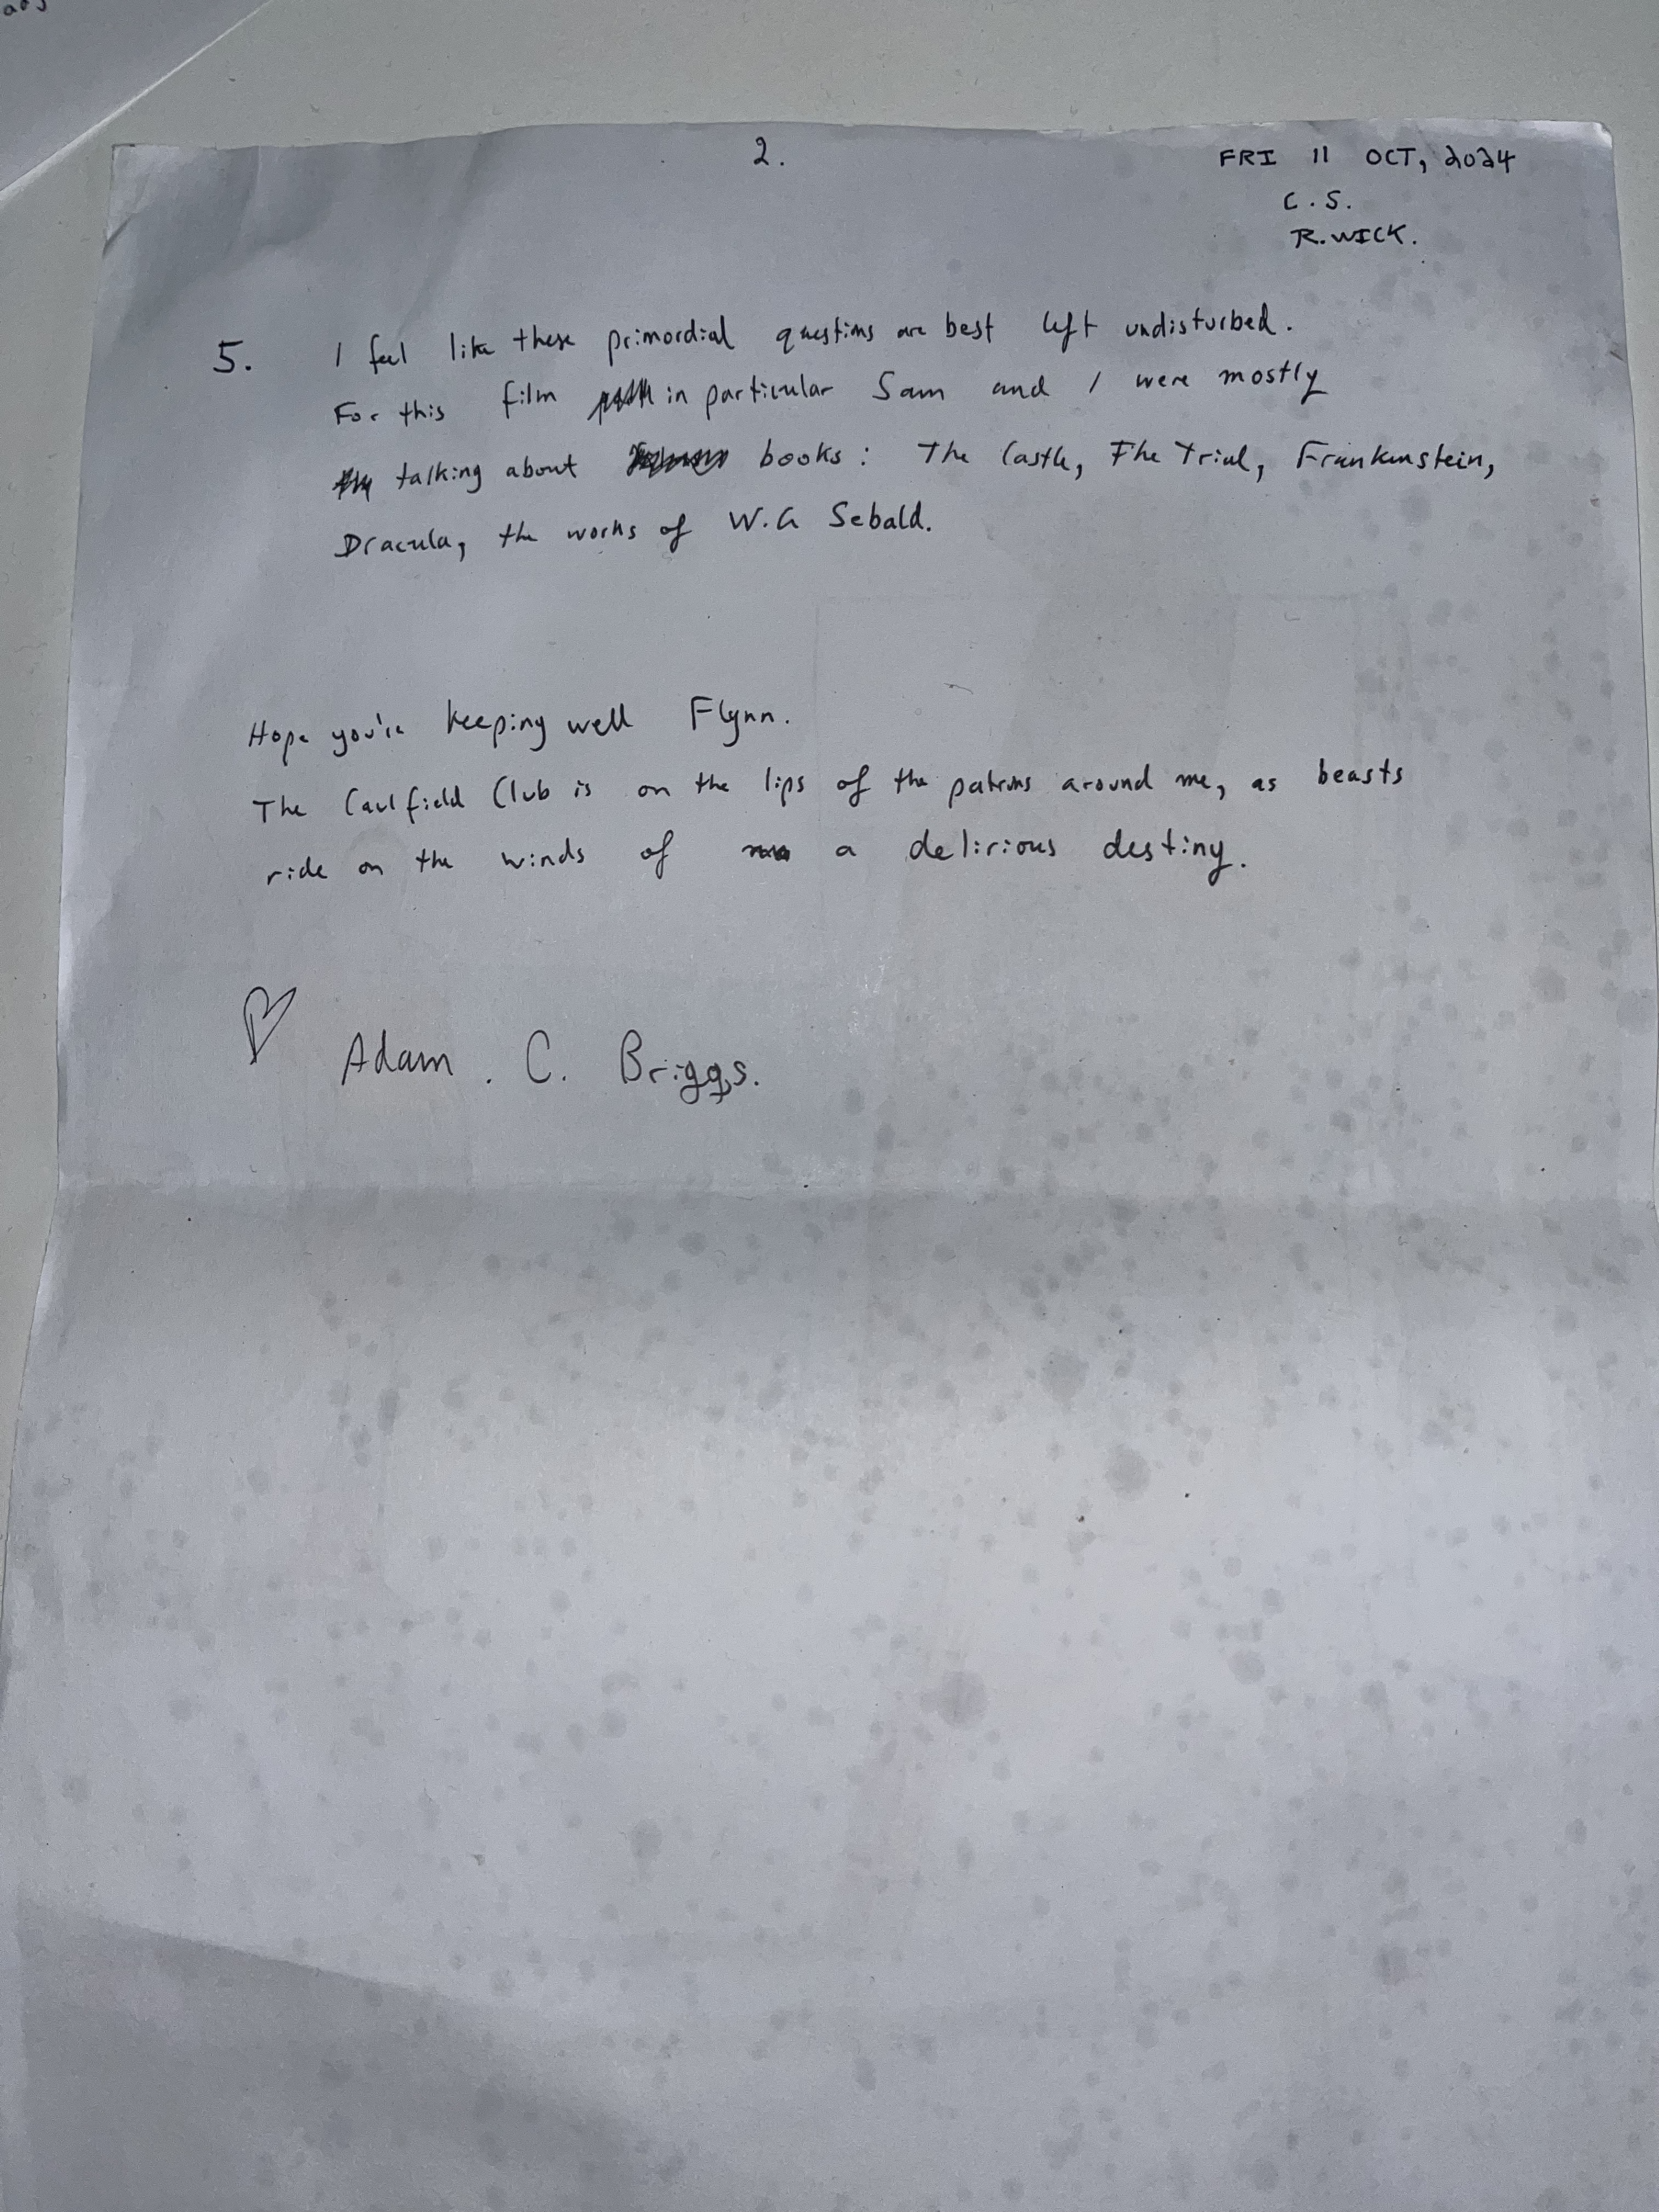 2.
FRI 11 OCT, 2024
C.S.
R.WICK.
5. I feel like these primordial questions are best left undisturbed.
For this film in particular Sam and I were mostly
talking about books: The Castle, The Trial, Frankenstein,
Dracula, the works of W.G Sebald.
Hope you're keeping well Flynn.
The Caulfield Club is on the lips of the patrons around me, as beasts
ride on the winds of a delirious destiny.
Adam. C. Briggs.